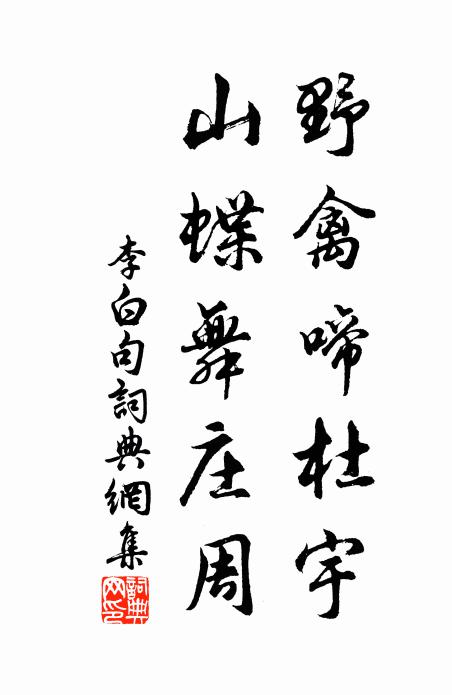 野禽啼杜宇
山蝶舞庄周
李白句詞典網集
詞典
网印